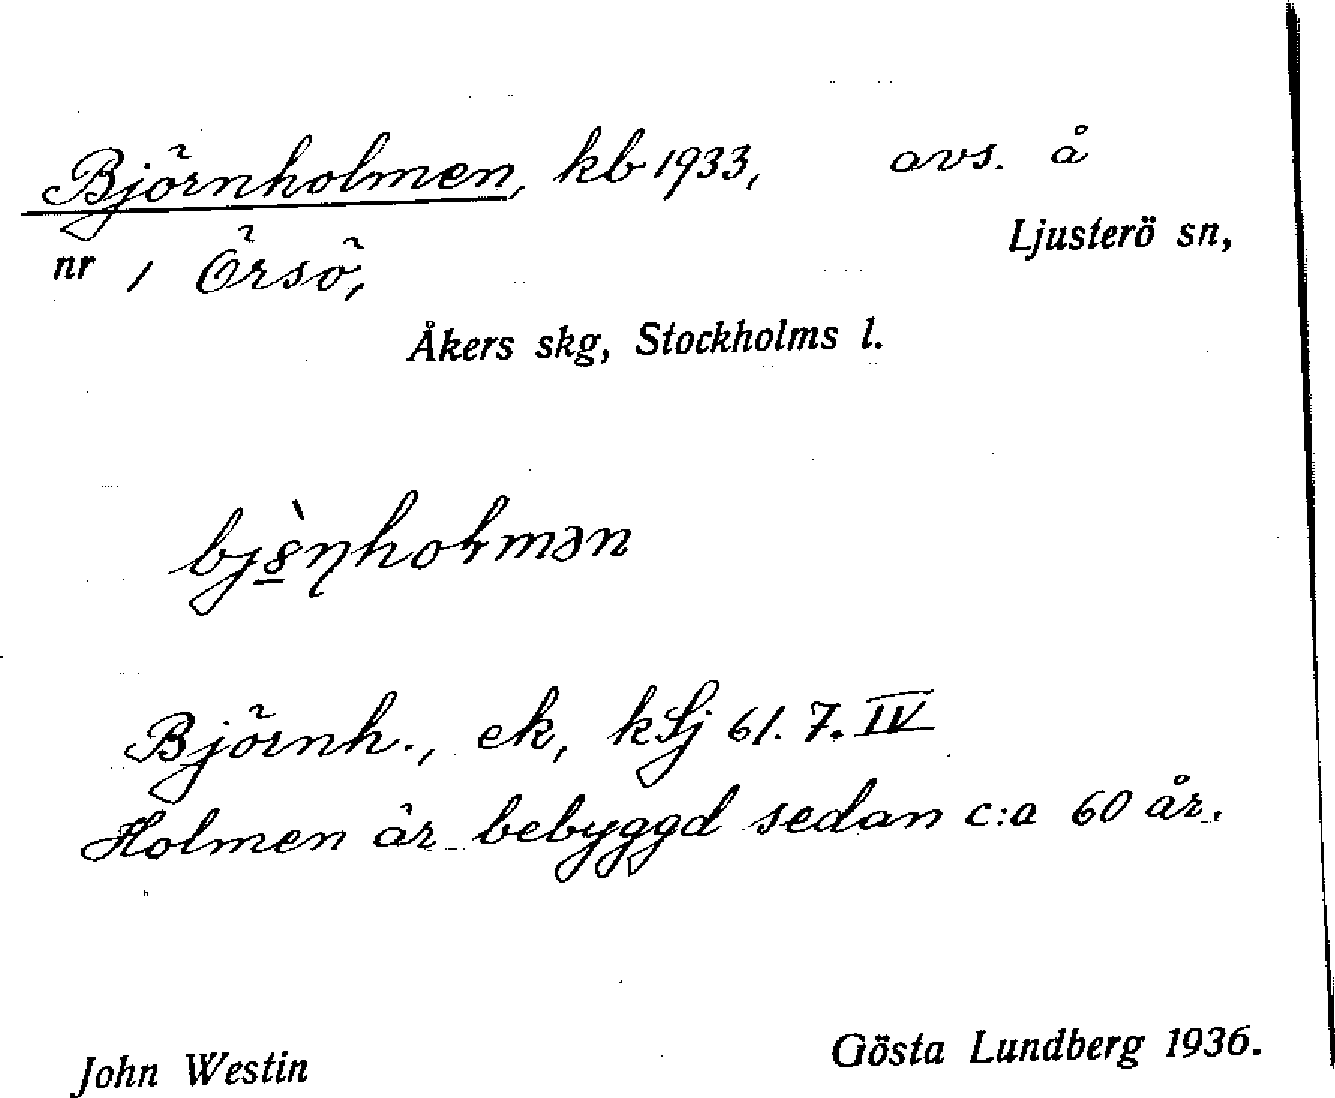 Björnholmen, kb 1933, avs. å
Ljusterö sn,
nr 1 Örsö,
Åkers skg, Stockholms l.
Björnh., ek, kLj 61. 7. IV
Holmen är bebyggd sedan c:a 60 år.
John Westin Gösta Lundberg 1936.